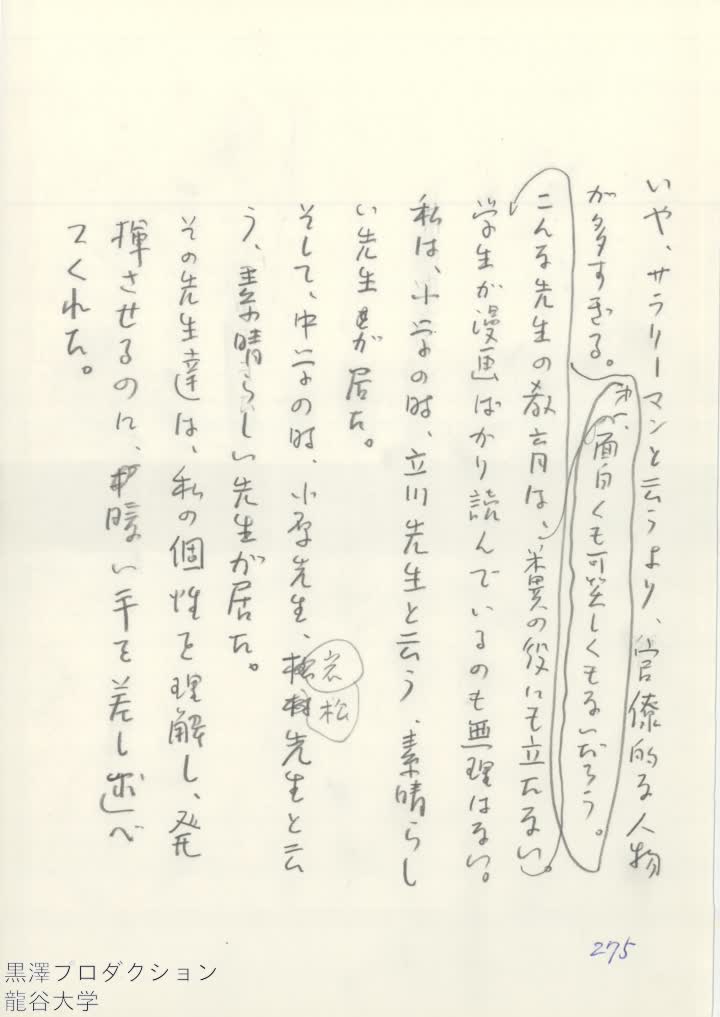 いや、サラリーマンと云うより、官僚的な人物
が多すぎる。
が、面白くも可笑しくもないだろう。
こんな先生の教育は、糞の役にも立たない。
学生が漫画ばかり読んでいるのも無理はない。
私は、小学の時、立川先生と云う、素晴らし
い先生が居た。
そして、中学の時、小原先生、岩松先生と云
う、素晴らしい先生が居た。
その先生達は、私の個性を理解し、発
揮させるのに、暖い手を差し述べ
てくれた。
275
黒澤プロダクション
龍谷大学